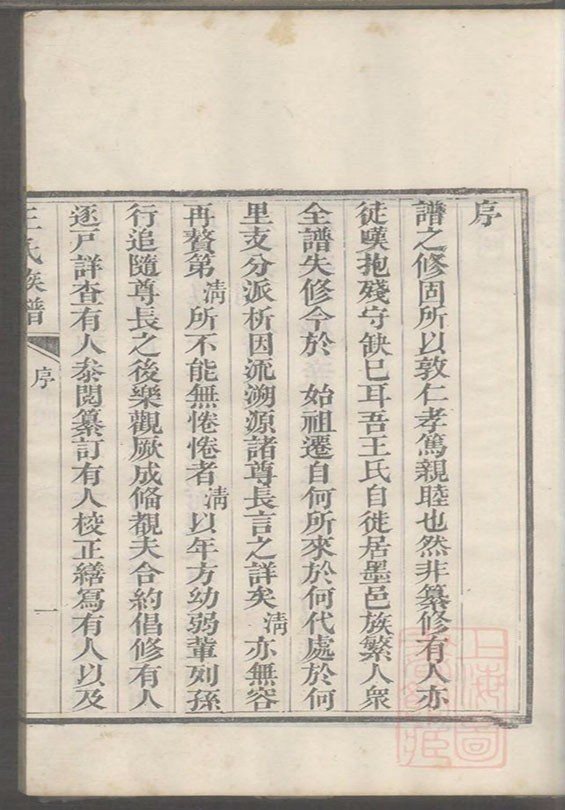 序
譜之修固所以敦仁孝篤親睦也然非纂修有人亦
徒嘆抱殘守缺已耳吾王氏自徙居墨邑族繁人衆
全譜失修今於 始祖遷自何所來於何代處於何
里支分派析因流溯源諸尊長言之詳矣淸亦無容
再贅第淸所不能無惓惓者淸以年方幼弱輩列孫
行追隨尊長之後樂觀厥成俻覩夫合約倡修有人
逐戸詳查有人叅閱纂訂有人校正繕寫有人以及
王氏族譜 序 一
上海圖